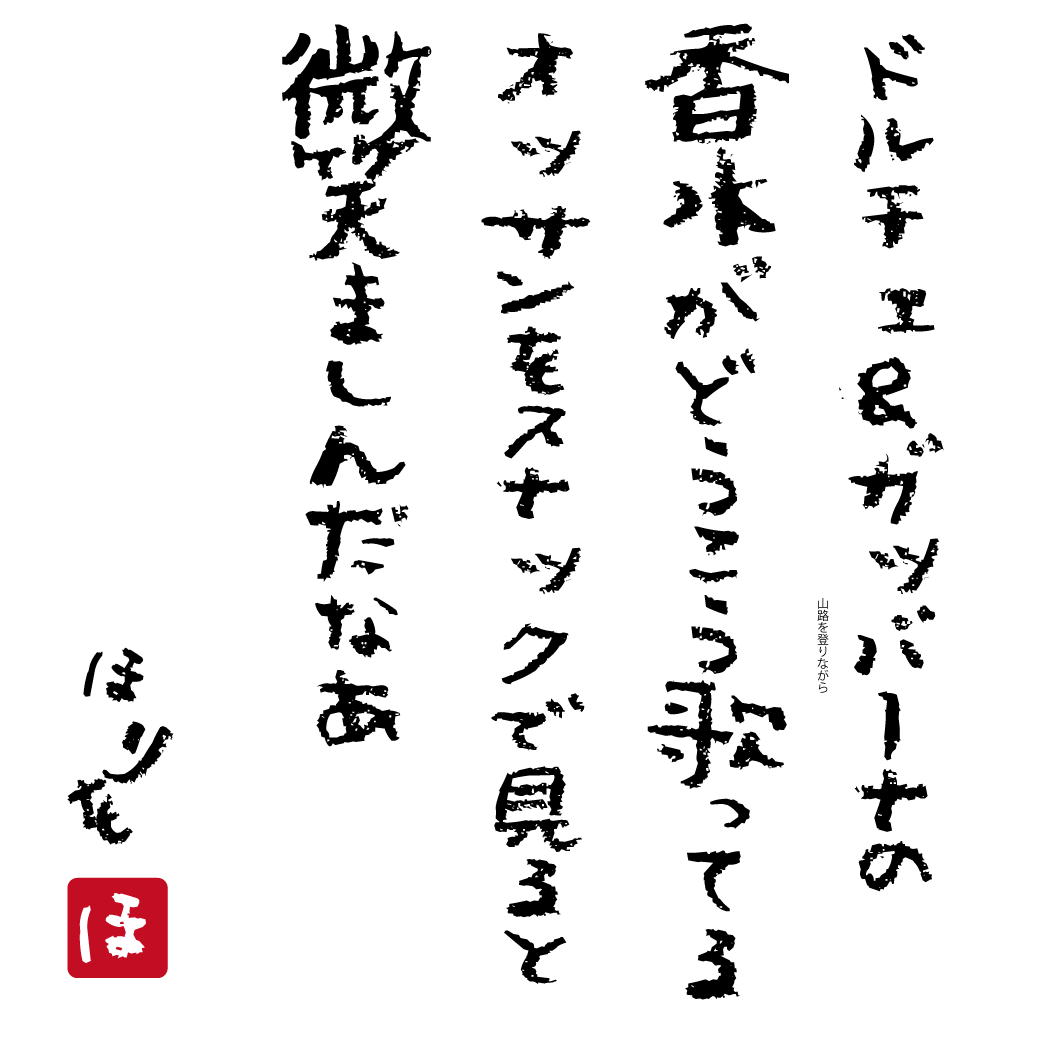 ドルチェ&ガッバーナの
山路を登りながら
香水がどうこう歌ってる
オッサンをスナックで見ると
微笑ましんだなあ
ほりを
ほ